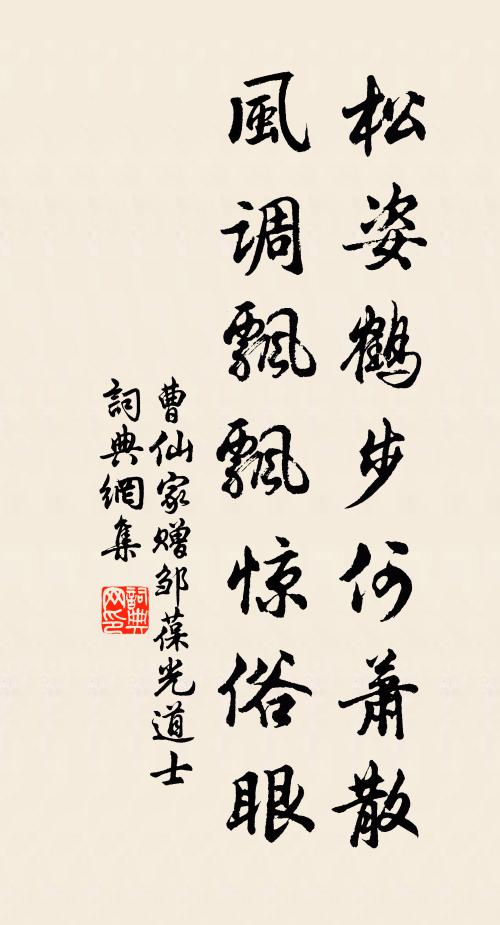 松姿鹤步何萧散
風调飘飘惊俗眼
曹仙家赠邹葆光道士
詞典網集
詞典
网印